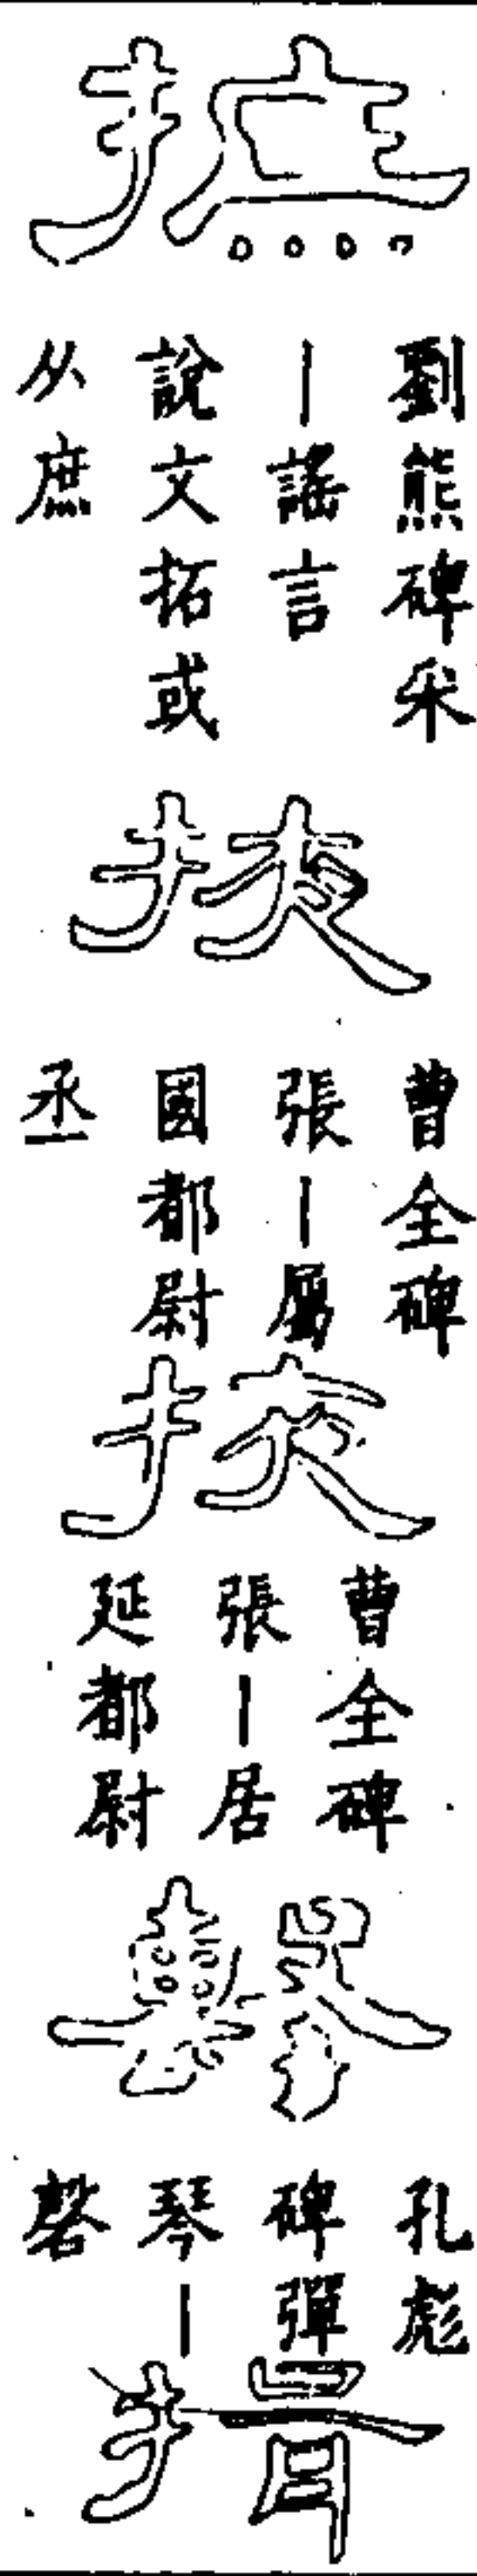 摭
劉熊碑采
｜謠言
說文拓或
从庶
掖
曹全碑
張｜屬
國都尉
丞
掖
曹全碑
張｜居
延都尉
孔彪
碑彈
琴｜
磬